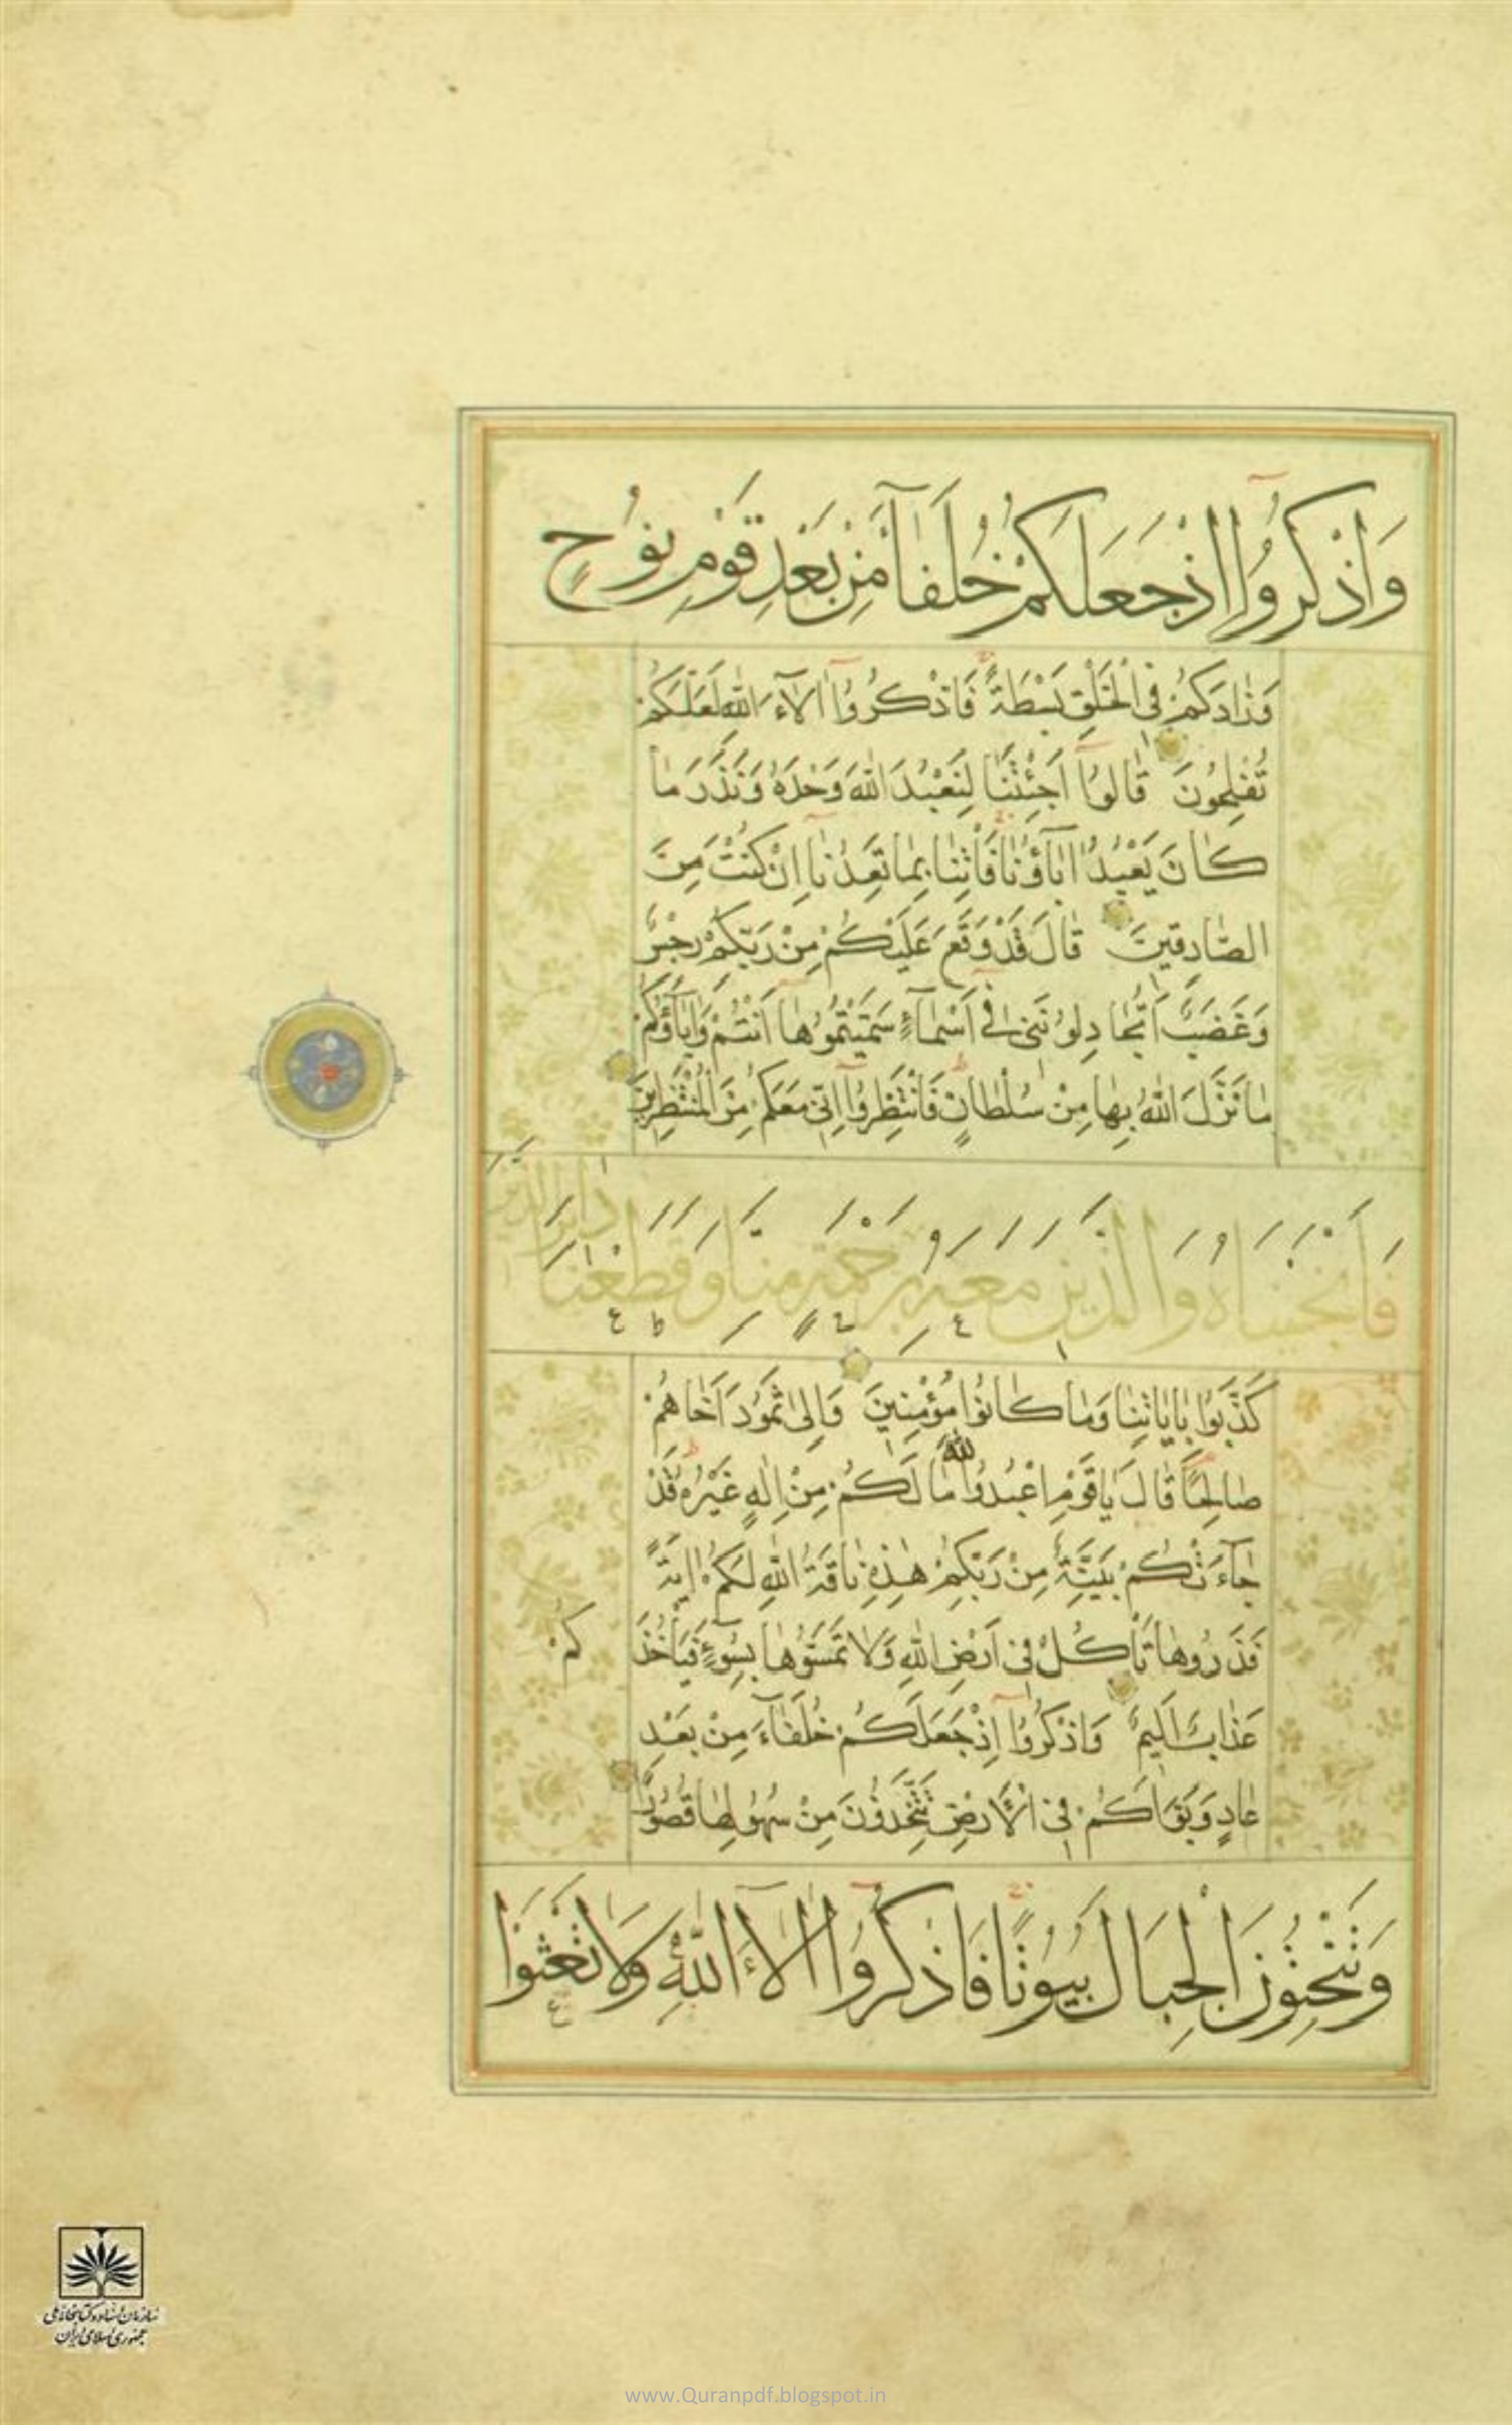 وَاذْكُرُوا اِذْ جَعَلَكُمْ خُلَفَآءَ مِنْ بَعْدِ قَوْمِ نُوحٍ
وَزَادَكُمْ فِي الْخَلْقِ بَسْطَةً فَاذْكُرُوا اٰلَآءَ اللّٰهِ لَعَلَّكُمْ
تُفْلِحُونَ قَالُوا اَجِئْتَنَا لِنَعْبُدَ اللّٰهَ وَحْدَهُ وَنَذَرَ مَا
كَانَ يَعْبُدُ اٰبَآؤُنَا فَأْتِنَا بِمَا تَعِدُنَا اِنْ كُنْتَ مِنَ
الصَّادِقِينَ قَالَ قَدْ وَقَعَ عَلَيْكُمْ مِنْ رَبِّكُمْ رِجْسٌ
وَغَضَبٌ اَتُجَادِلُونَنِي فِي اَسْمَآءٍ سَمَّيْتُمُوهَا اَنْتُمْ وَاٰبَآؤُكُمْ
مَا نَزَّلَ اللّٰهُ بِهَا مِنْ سُلْطَانٍ فَانْتَظِرُوا اِنِّي مَعَكُمْ مِنَ الْمُنْتَظِرِينَ
فَاَنْجَيْنَاهُ وَالَّذِينَ مَعَهُ بِرَحْمَةٍ مِنَّا وَقَطَعْنَا دَابِرَ الَّذِينَ
كَذَّبُوا بِاٰيَاتِنَا وَمَا كَانُوا مُؤْمِنِينَ وَاِلٰى ثَمُودَ اَخَاهُمْ
صَالِحًا قَالَ يَا قَوْمِ اعْبُدُوا اللّٰهَ مَا لَكُمْ مِنْ اِلٰهٍ غَيْرُهُ قَدْ
جَآءَتْكُمْ بَيِّنَةٌ مِنْ رَبِّكُمْ هٰذِهِ نَاقَةُ اللّٰهِ لَكُمْ اٰيَةً
فَذَرُوهَا تَأْكُلْ فِي اَرْضِ اللّٰهِ وَلَا تَمَسُّوهَا بِسُوٓءٍ فَيَأْخُذَ كُمْ
عَذَابٌ اَلِيمٌ وَاذْكُرُوا اِذْ جَعَلَكُمْ خُلَفَآءَ مِنْ بَعْدِ
عَادٍ وَبَوَّاَكُمْ فِي الْاَرْضِ تَتَّخِذُونَ مِنْ سُهُولِهَا قُصُورًا
وَتَنْحِتُونَ الْجِبَالَ بُيُوتًا فَاذْكُرُوا اٰلَآءَ اللّٰهِ وَلَا تَعْثَوْا
سازمان اسناد و کتابخانه ملی
جمهوری اسلامی ایران
www.Quranpdf.blogspot.in